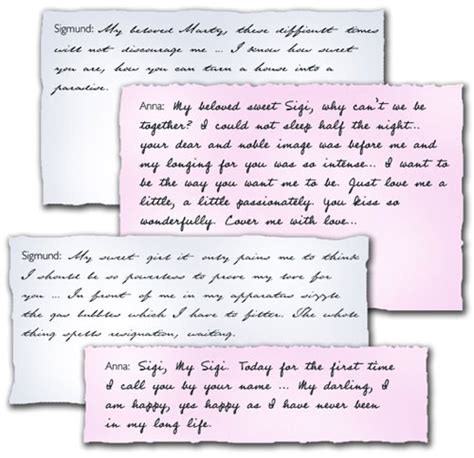 Sigmund: My beloved Marty, these difficult times
will not discourage me ... I know how sweet
you are, how you can turn a house into a
paradise.
Anna: My beloved sweet Sigi, why can't we be
together? I could not sleep half the night...
your dear and noble image was before me and
my longing for you was so intense... I want to
be the way you want me to be. Just love me a
little, a little passionately. You kiss so
wonderfully. Cover me with love...
Sigmund: My sweet girl it only pains me to think
I should be so powerless to prove my love for
you ... In front of me in my apparatus sizzle
the gas bubbles which I have to filter. The whole
thing spells resignation, waiting.
Anna: Sigi, My Sigi. Today for the first time
I call you by your name ... My darling, I
am happy, yes happy as I have never been
in my long life.